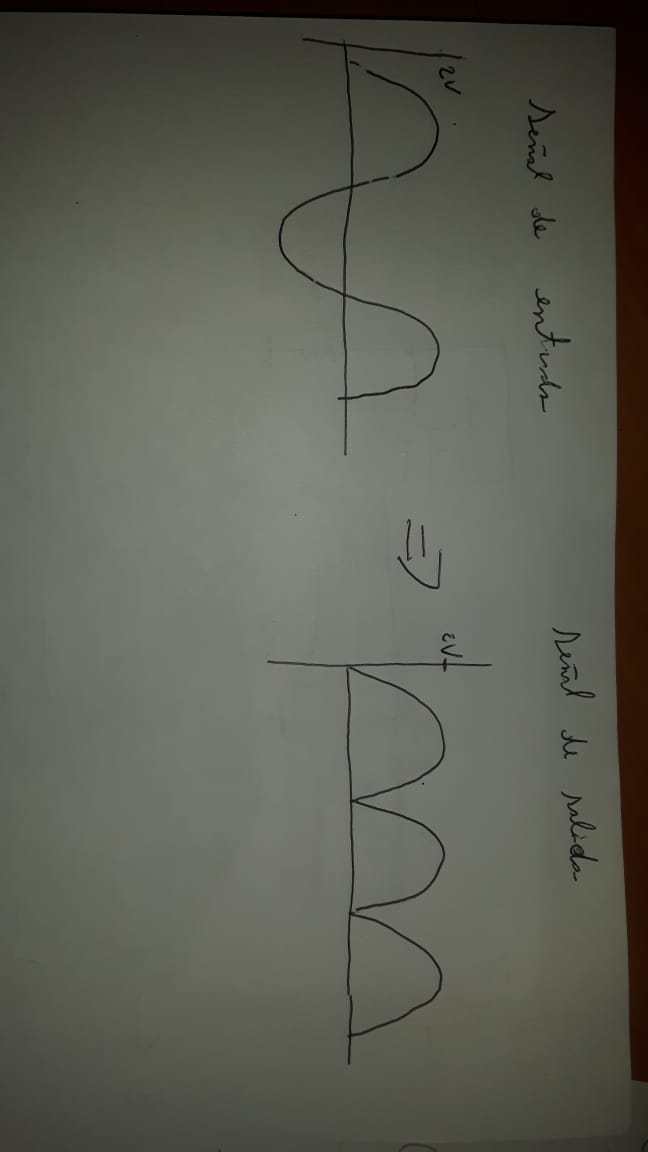 Señal de entrada
2V
⇒
Señal de salida
2V